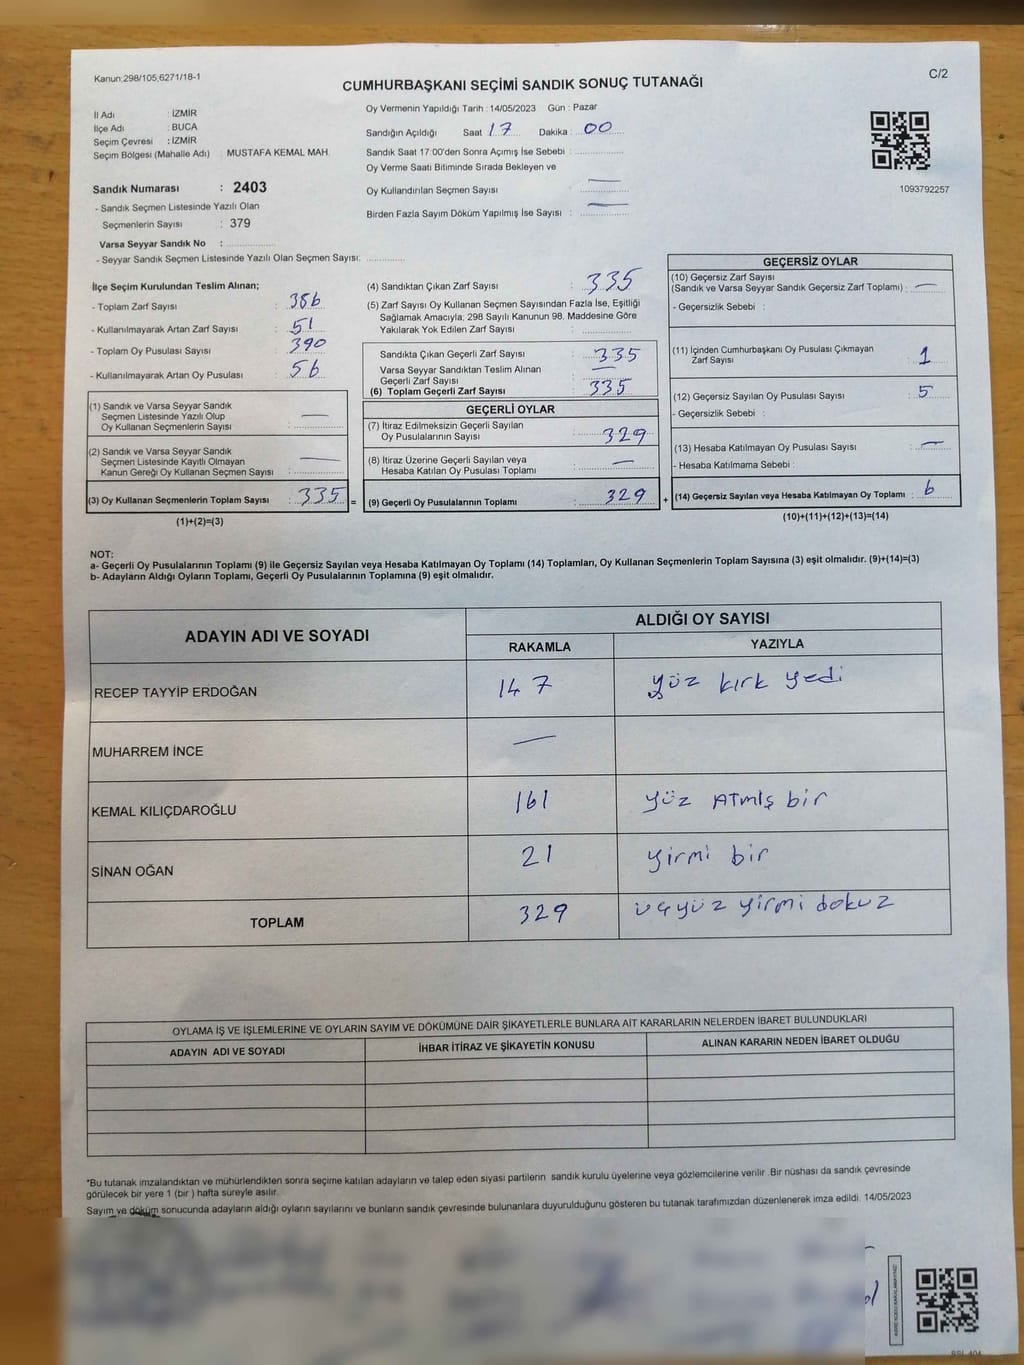 Kanun:298/105,6271/18-1
CUMHURBAŞKANI SEÇİMİ SANDIK SONUÇ TUTANAĞI
C/2
İl Adı : İZMİR
İlçe Adı : BUCA
Seçim Çevresi : İZMİR
Seçim Bölgesi (Mahalle Adı) MUSTAFA KEMAL MAH.
Sandık Numarası : 2403
- Sandık Seçmen Listesinde Yazılı Olan
Seçmenlerin Sayısı : 379
Varsa Seyyar Sandık No :
- Seyyar Sandık Seçmen Listesinde Yazılı Olan Seçmen Sayısı:
Oy Vermenin Yapıldığı Tarih : 14/05/2023 Gün : Pazar
Sandığın Açıldığı Saat 17 Dakika : 00
Sandık Saat 17:00'den Sonra Açımış İse Sebebi :
Oy Verme Saati Bitiminde Sırada Bekleyen ve
Oy Kullandırılan Seçmen Sayısı : —
Birden Fazla Sayım Döküm Yapılmış İse Sayısı : —
1093792257
İlçe Seçim Kurulundan Teslim Alınan;
- Toplam Zarf Sayısı : 386
- Kullanılmayarak Artan Zarf Sayısı : 51
- Toplam Oy Pusulası Sayısı : 390
- Kullanılmayarak Artan Oy Pusulası : 56
(1) Sandık ve Varsa Seyyar Sandık
Seçmen Listesinde Yazılı Olup
Oy Kullanan Seçmenlerin Sayısı : —
(2) Sandık ve Varsa Seyyar Sandık
Seçmen Listesinde Kayıtlı Olmayan
Kanun Gereği Oy Kullanan Seçmen Sayısı : —
(3) Oy Kullanan Seçmenlerin Toplam Sayısı : 335 =
(1)+(2)=(3)
(4) Sandıktan Çıkan Zarf Sayısı : 335
(5) Zarf Sayısı Oy Kullanan Seçmen Sayısından Fazla İse, Eşitliği
Sağlamak Amacıyla; 298 Sayılı Kanunun 98. Maddesine Göre
Yakılarak Yok Edilen Zarf Sayısı :
Sandıkta Çıkan Geçerli Zarf Sayısı : 335
Varsa Seyyar Sandıktan Teslim Alınan
Geçerli Zarf Sayısı : —
(6) Toplam Geçerli Zarf Sayısı : 335
GEÇERLİ OYLAR
(7) İtiraz Edilmeksizin Geçerli Sayılan
Oy Pusulalarının Sayısı : 329
(8) İtiraz Üzerine Geçerli Sayılan veya
Hesaba Katılan Oy Pusulası Toplamı : —
(9) Geçerli Oy Pusulalarının Toplamı : 329 +
GEÇERSİZ OYLAR
(10) Geçersiz Zarf Sayısı
(Sandık ve Varsa Seyyar Sandık Geçersiz Zarf Toplamı) : —
- Geçersizlik Sebebi :
(11) İçinden Cumhurbaşkanı Oy Pusulası Çıkmayan
Zarf Sayısı : 1
(12) Geçersiz Sayılan Oy Pusulası Sayısı : 5
- Geçersizlik Sebebi :
(13) Hesaba Katılmayan Oy Pusulası Sayısı : —
- Hesaba Katılmama Sebebi :
(14) Geçersiz Sayılan veya Hesaba Katılmayan Oy Toplamı : 6
(10)+(11)+(12)+(13)=(14)
NOT:
a- Geçerli Oy Pusulalarının Toplamı (9) ile Geçersiz Sayılan veya Hesaba Katılmayan Oy Toplamı (14) Toplamları, Oy Kullanan Seçmenlerin Toplam Sayısına (3) eşit olmalıdır. (9)+(14)=(3)
b- Adayların Aldığı Oyların Toplamı, Geçerli Oy Pusulalarının Toplamına (9) eşit olmalıdır.
ADAYIN ADI VE SOYADI
ALDIĞI OY SAYISI
RAKAMLA YAZIYLA
RECEP TAYYİP ERDOĞAN 147 yüz kırk yedi
MUHARREM İNCE —
KEMAL KILIÇDAROĞLU 161 yüz ATmış bir
SİNAN OĞAN 21 yirmi bir
TOPLAM 329 üçyüz yirmi dokuz
OYLAMA İŞ VE İŞLEMLERİNE VE OYLARIN SAYIM VE DÖKÜMÜNE DAİR ŞİKAYETLERLE BUNLARA AİT KARARLARIN NELERDEN İBARET BULUNDUKLARI
ADAYIN ADI VE SOYADI İHBAR İTİRAZ VE ŞİKAYETİN KONUSU ALINAN KARARIN NEDEN İBARET OLDUĞU
*Bu tutanak imzalandıktan ve mühürlendikten sonra seçime katılan adayların ve talep eden siyasi partilerin sandık kurulu üyelerine veya gözlemcilerine verilir. Bir nüshası da sandık çevresinde
görülecek bir yere 1 (bir ) hafta süreyle asılır.
Sayım ve döküm sonucunda adayların aldığı oyların sayılarını ve bunların sandık çevresinde bulunanlara duyurulduğunu gösteren bu tutanak tarafımızdan düzenlenerek imza edildi. 14/05/2023